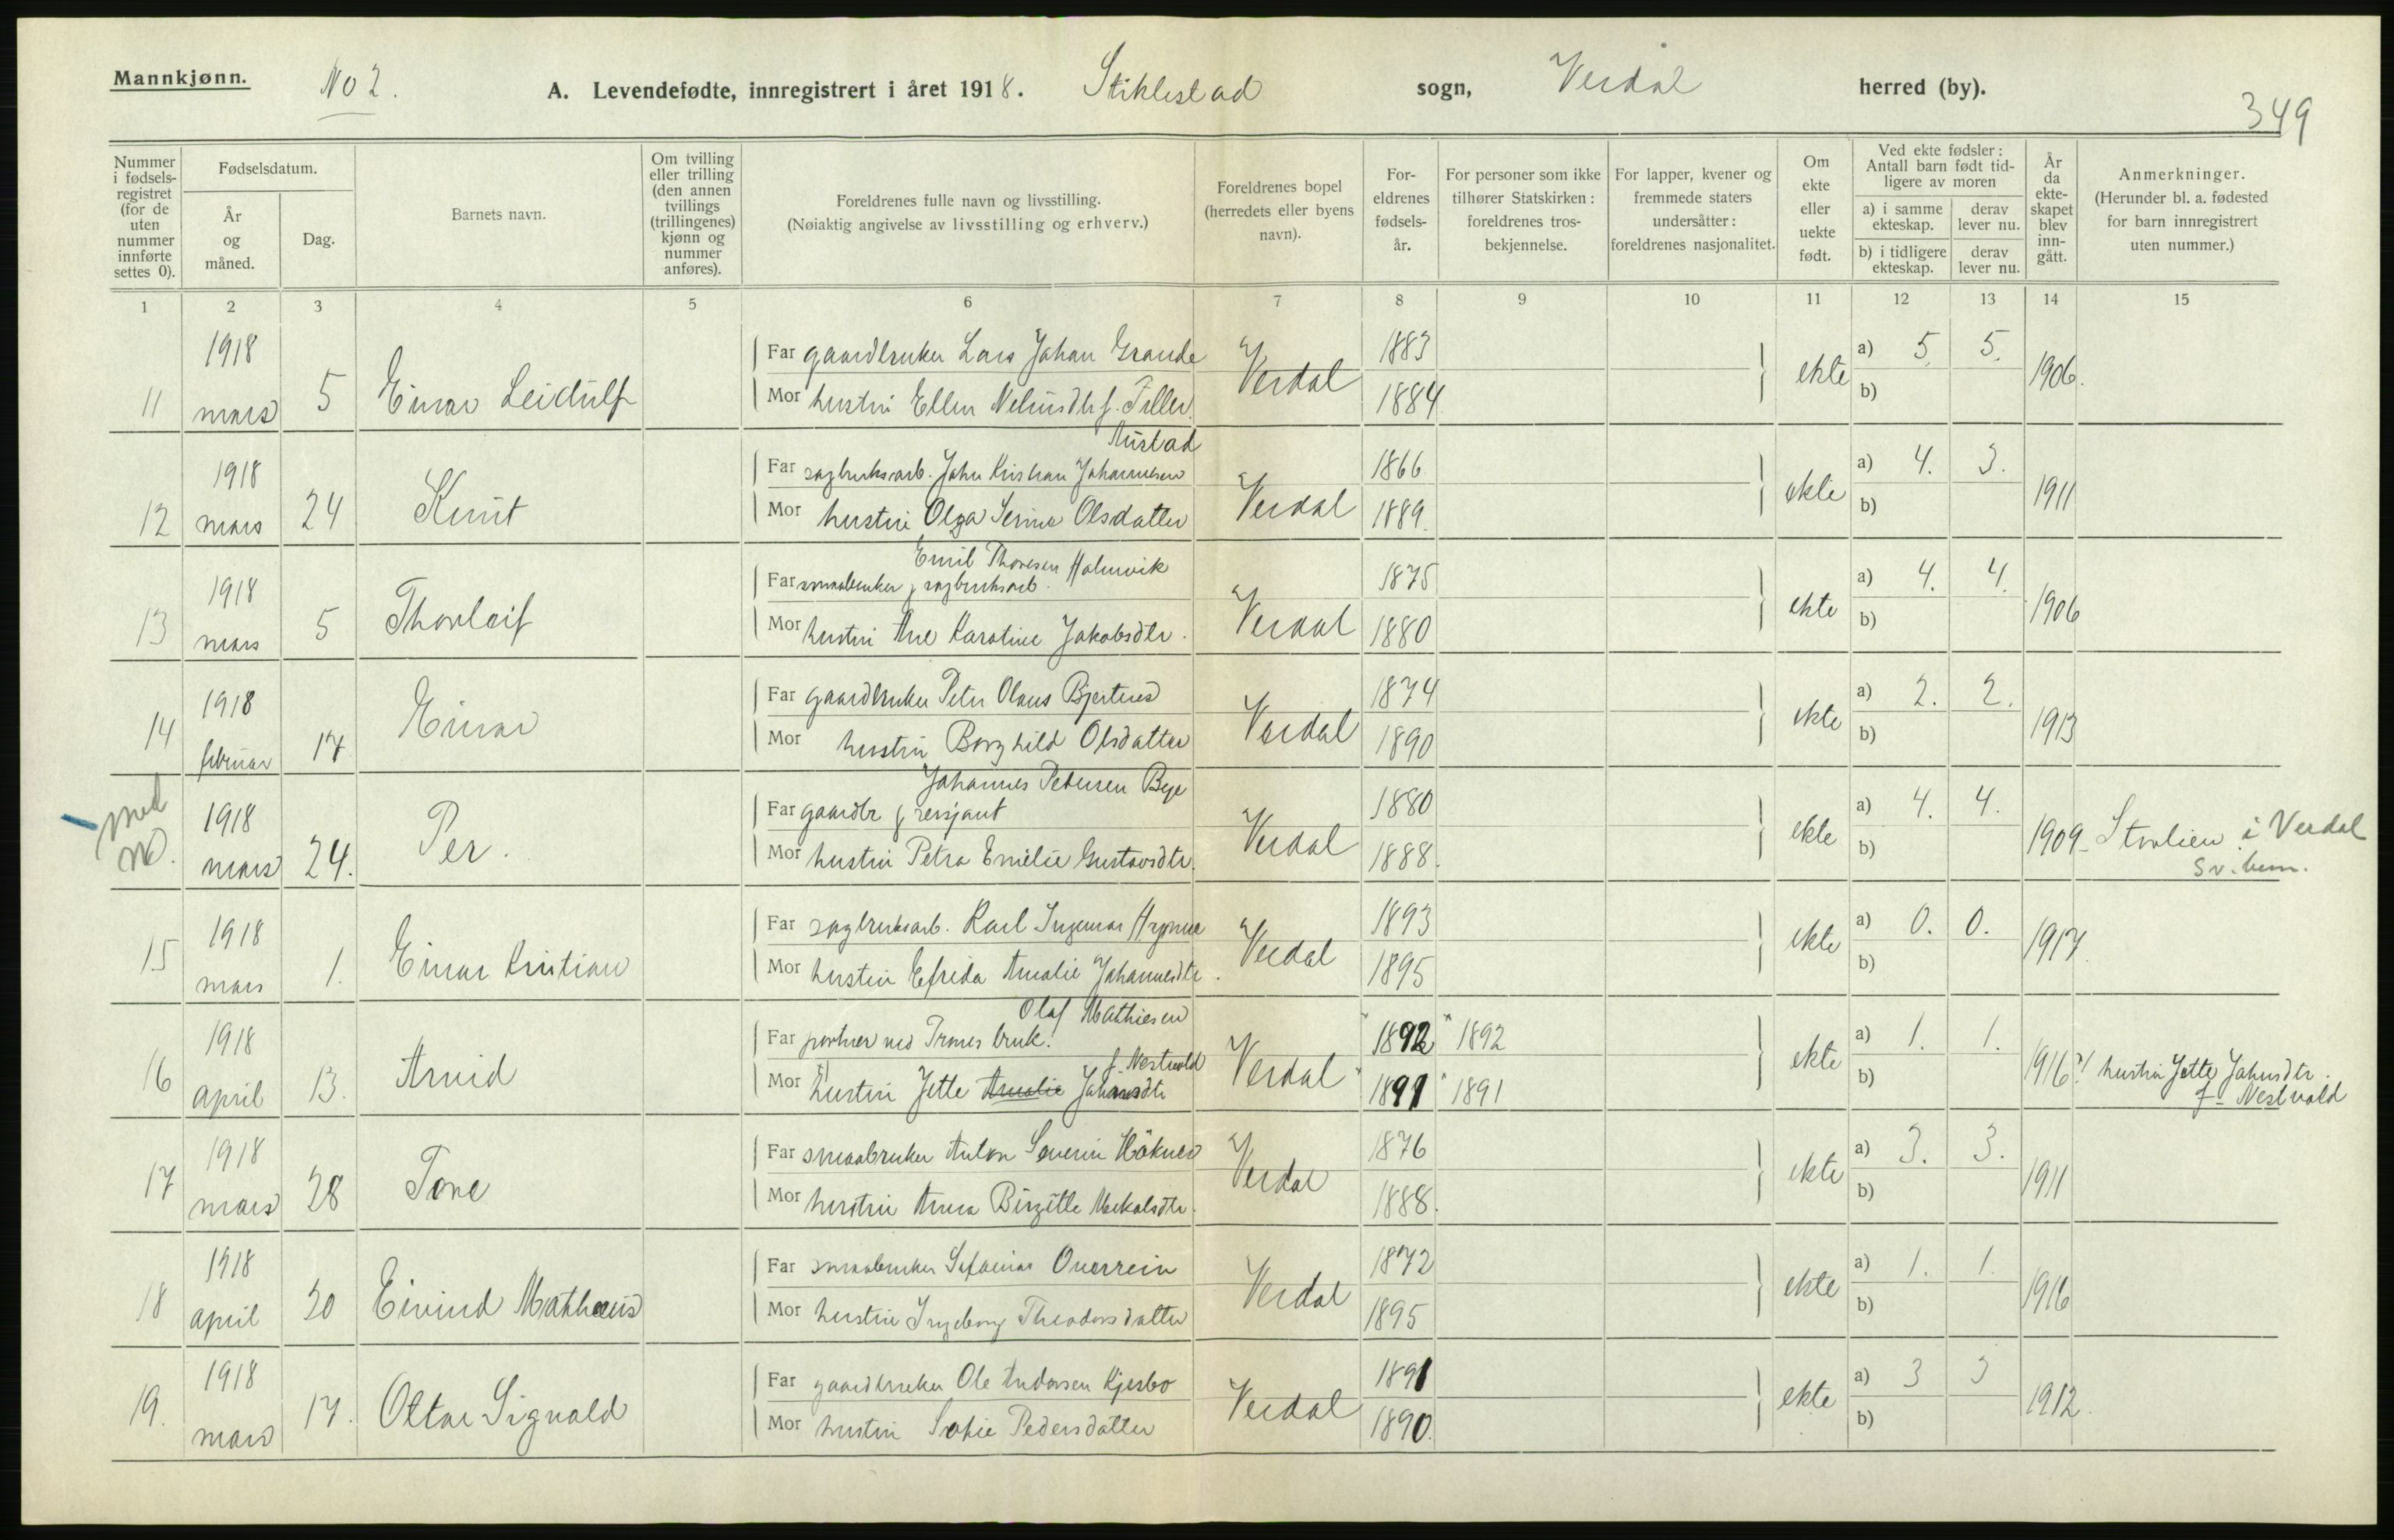 Mannkjønn. No 2. A. Levendefødte, innregistrert i året 1918. Stiklestad sogn, Verdal herred (by).
349
Nummer i fødsels-registret (for de uten nummer innførte settes 0).
Fødselsdatum.
År og måned.
Dag.
Barnets navn.
Om tvilling eller trilling (den annen tvillings (trillingenes) kjønn og nummer anføres).
Foreldrenes fulle navn og livsstilling.
(Nøiaktig angivelse av livsstilling og erhverv.)
Foreldrenes bopel (herredets eller byens navn).
For-eldrenes fødsels-år.
For personer som ikke tilhører Statskirken: foreldrenes tros-bekjennelse.
For lapper, kvener og fremmede staters undersåtter: foreldrenes nasjonalitet.
Om ekte eller uekte født.
Ved ekte fødsler: Antall barn født tid-ligere av moren
a) i samme ekteskap. derav lever nu.
b) i tidligere ekteskap. derav lever nu.
År da ekte-skapet blev inn-gått.
Anmerkninger.
(Herunder bl. a. fødested for barn innregistrert uten nummer.)
1 2 3 4 5 6 7 8 9 10 11 12 13 14 15
1918 Far gaardbruker Lars Johan Grande 1883 a) 5. 5.
11 mars 5 Einar Leidulf Verdal ekte 1906.
Mor hustru Ellen f. Feller 1884 b)
Austad
1918 Far sagbruksarb. John Kristian Johannesen 1866 a) 4. 3.
12 mars 24 Knut Verdal ekte 1911
Mor hustru Olga Serine Olsdatter 1889. b)
Emil Thoresen Holmvik
1918 Far smaabruker & sagbruksarb. 1875 a) 4. 4.
13 mars 5 Thorleif Verdal ekte 1906
Mor hustru Ane Karoline Jakobsdtr. 1880 b)
1918 Far gaardbruker Peter Olaus Bjertnes 1874 a) 2. 2.
14 februar 17 Einar Verdal ekte 1913
Mor hustru Borghild Olsdatter 1890 b)
Johannes Petersen Bye
1918 Far gaardbr & sersjant 1880 a) 4. 4.
med no. mars 24. Per. Verdal ekte 1909 Storlien i Verdal
Mor hustru Petra Emelie Gustavsdtr. 1888. b)
1918 Far sagbruksarb. Karl Ingemar Hynne 1893 a) 0. 0.
15 mars 1. Einar Kristian Verdal ekte 1917.
Mor hustru Efrida Amalie Johannesdtr. 1895 b)
Olaf Mathiesen
1918 Far portner ved Trones bruk. " 1892 " 1892 a) 1. 1.
f. Nestvold
16 april 13. Arvid Verdal ekte 1916
Mor hustru Jette Amalie Johnsdtr " 1891 " 1891 b) hustru Jette Johnsdtr.
f. Nestvold
1918 Far smaabruker Anton Severin Haaknes 1876 a) 3. 3.
17 mars 28 Tore Verdal ekte 1911
Mor hustru Anna Birgitte 1888. b)
1918 Far smaabruker Sefanias Overrein 1872 a) 1. 1
18 april 20 Eivind Mathæus Verdal ekte 1916
Mor hustru Ingeborg Theodorsdatter 1895 b)
1918 Far gaardbruker Ole Andersen Kjesbo 1891 a) 3 3
19. mars 17. Ottar Sigvald Verdal ekte 1912.
Mor hustru Sofie Pedersdatter 1890. b)